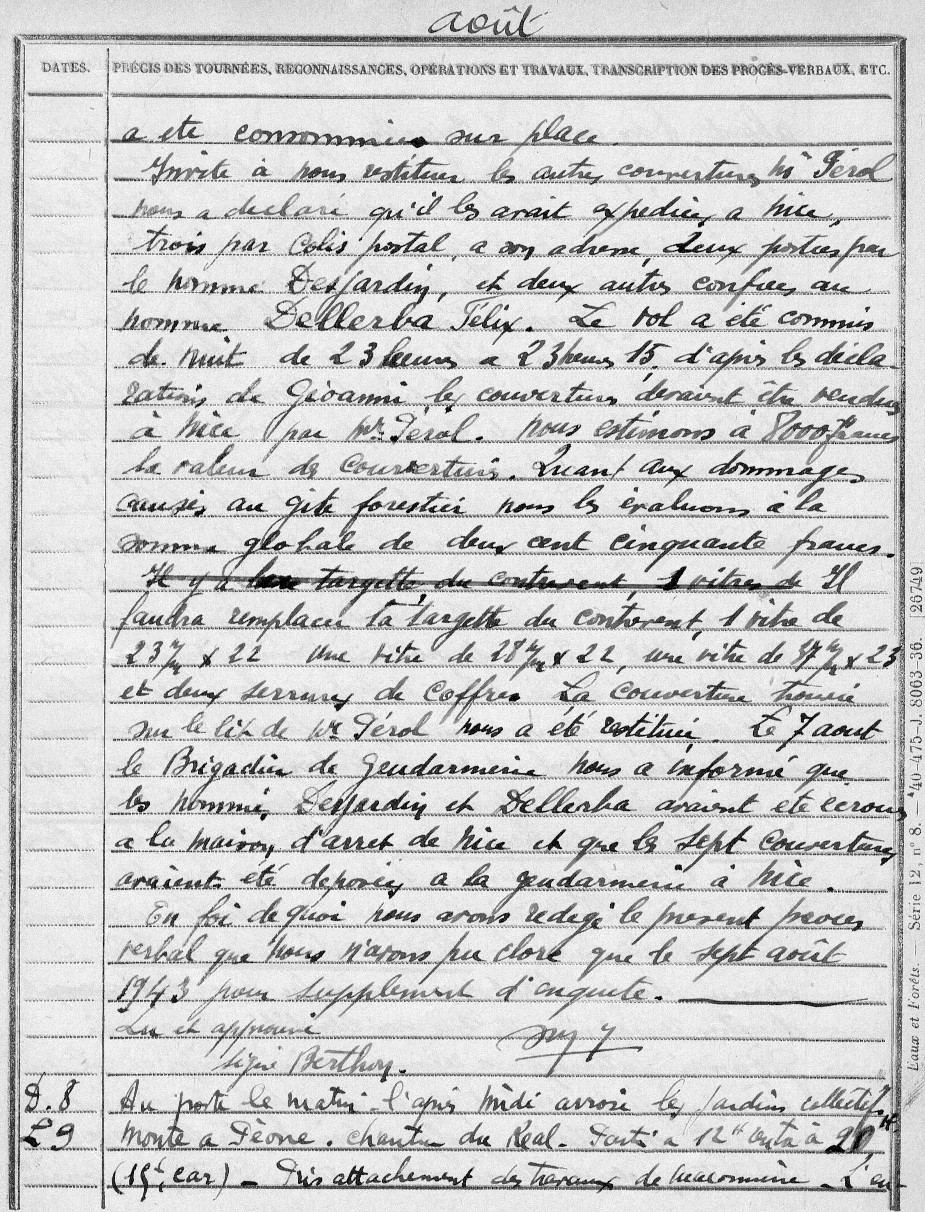 août
DATES. PRÉCIS DES TOURNÉES, RECONNAISSANCES, OPÉRATIONS ET TRAVAUX, TRANSCRIPTION DES PROCÈS-VERBAUX, ETC.
a ete consommée sur place.
Invite à nous restituer les autres couvertures Mr Pérol
nous a declaré qu'il les avait expediées a Nice,
trois par colis postal, a son adresse, deux portées par
le nommé Desjardin, et deux autres confiées au
nommé Dellerba Félix. Le vol a été commis
de nuit de 23 heures a 23 heures 15, d'après les décla-
rations de Giovanni les couvertures devaient être vendues
à Nice par Mr Pérol. Nous estimons à 8000 francs
la valeur des couvertures. Quant aux dommages
causés au gite forestier nous les évaluons à la
somme globale de deux cent cinquante francs.
Il y a targette du contrevent, 1 vitres de Il
faudra remplacer la targette du contrevent, 1 vitre de
23 c/m x 22 une vitre de 28 c/m x 22, une vitre de 37 c/m x 23
et deux serrures de coffres La couverture trouvée
sur le lit de Mr Pérol nous a été restituée. Le 7 aout
le Brigadier de Gendarmerie nous a informé que
les nommés Desjardin et Dellerba avaient été écroués
a la maison d'arret de Nice et que les sept couvertures
avaient été deposées a la gendarmerie à Nice.
En foi de quoi nous avons redigé le present proces
verbal que nous n'avons pu clore que le sept août
1943 pour supplement d'enquete.
Lu et approuvé
signé Berthoy.
D. 8 Au poste le matin - l'apres midi arrosé les jardins collectifs
L 9 Monté a Péone. chantier du Réal - Parti a 12H rentré à 20H
(15 car) - Pris attachement des travaux de maconnerie - L'en-
Eaux et Forêts. — Série 12, n° 8. — 40-475-J. 8063-36. [26749]